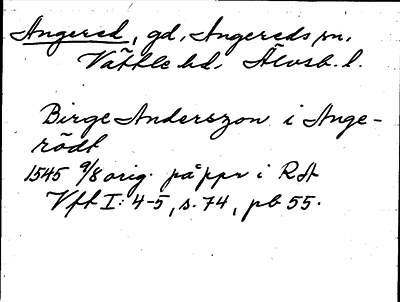 Angered, gd, Angereds sn,
Vättle hd, Älvsb. l.
Birge Anderszon i Ange-
rödt
1545 9/8 orig. på ppr i RA
Vft I: 4-5, s. 74, pb 55.